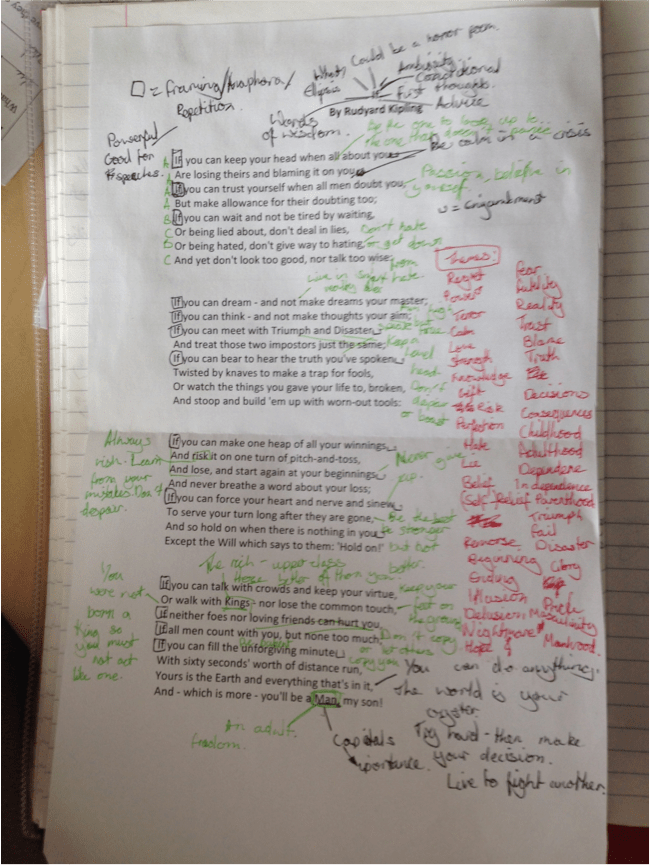 What
Could be a horror poem.
Ellipsis
Ambiguity
Conditional
First thoughts
Advice
□ = Framing/Anaphora/
Repetition.
By Rudyard Kipling
Words
of wisdom.
Powerful
Good for
speeches.
Be the one to look up to
the one that doesn't panic
Be calm in a crisis
If you can keep your head when all about you
Are losing theirs and blaming it on you,
If you can trust yourself when all men doubt you,
But make allowance for their doubting too;
If you can wait and not be tired by waiting,
Or being lied about, don't deal in lies,
Or being hated, don't give way to hating,
And yet don't look too good, nor talk too wise:
A
B
C
B
C
Passion, believe in
yourself.
= Enjambment
Don't hate
or get down
from
hate.
If you can dream - and not make dreams your master;
If you can think - and not make thoughts your aim;
If you can meet with Triumph and Disaster
And treat those two impostors just the same;
If you can bear to hear the truth you've spoken
Twisted by knaves to make a trap for fools,
Or watch the things you gave your life to, broken,
And stoop and build 'em up with worn-out tools:
Keep a
level
head
Don't
despair
or boast
Themes:
Regret
Power
Terror
Calm
Love
Strength
Knowledge
Gift
Risk
Perfection
Hate
Lie
Belief
(Self) Belief
Remorse
Beginning
Ending
Illusion
Delusion
Nightmare
Hope
Fear
Futility
Reality
Trust
Blame
Truth
Decisions
Consequences
Childhood
Adulthood
Dependence
Independence
Parenthood
Triumph
Fail
Disaster
Glory
Pride
Masculinity
Manhood.
Always
risk. Learn
from your
mistakes. Don't
despair.
If you can make one heap of all your winnings
And risk it on one turn of pitch-and-toss,
And lose, and start again at your beginnings
And never breathe a word about your loss;
If you can force your heart and nerve and sinew
To serve your turn long after they are gone,
And so hold on when there is nothing in you
Except the Will which says to them: 'Hold on!'
Never give
up.
Be the best
Be stronger
but not
better.
The rich - upper class
those better off than you.
You
were not
born a
King so
you must
not act
like one.
If you can talk with crowds and keep your virtue,
Or walk with Kings - nor lose the common touch,
If neither foes nor loving friends can hurt you,
If all men count with you, but none too much;
If you can fill the unforgiving minute
With sixty seconds' worth of distance run,
Yours is the Earth and everything that's in it,
And - which is more - you'll be a Man, my son!
Keep your
feet on
the ground
Don't copy
or let others
copy you
You can do anything.
The world is your
oyster.
Try hard - then make
your decision.
Live to fight another.
An adult.
freedom.
Capitals
importance.